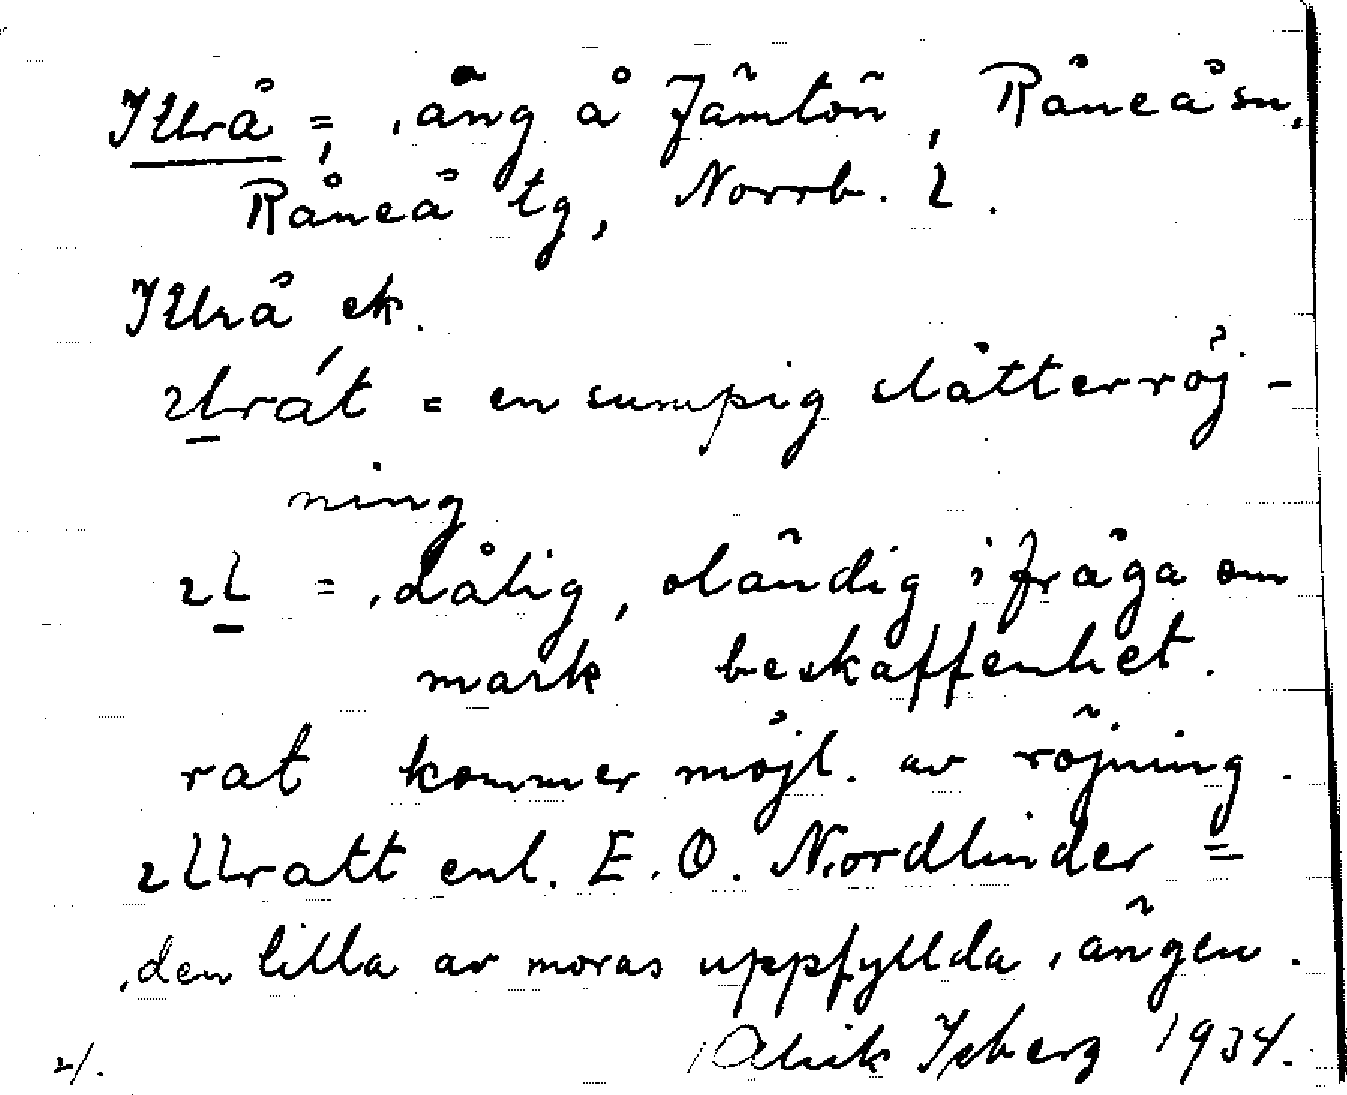 Illrå = äng å Jämtön, Råneå sn,
Råneå tg, Norrb. l.
Illrå ek.
ılrát = en sumpig slåtterröj-
ning
ıl = dålig, oländig i fråga om
mark beskaffenhet.
rat kommer möjl. av röjning.
ıllratt enl. E. O. Nordlinder =
den lilla av moras uppfyllda ängen.
Alrik Isberg 1934.
2/.